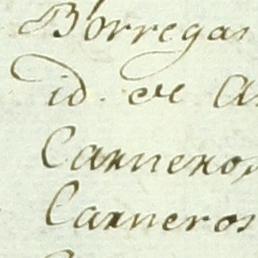 Borregas
id. de
Carneros
Carneros